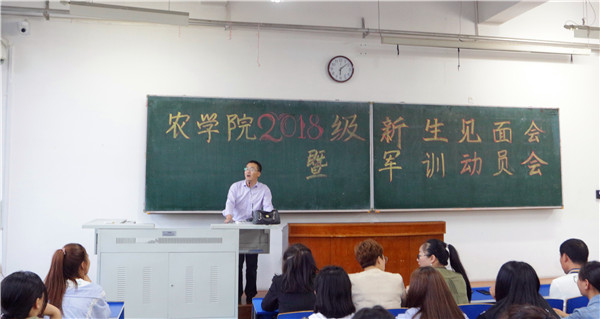 农学院2018级 新生见面会
暨 军训动员会